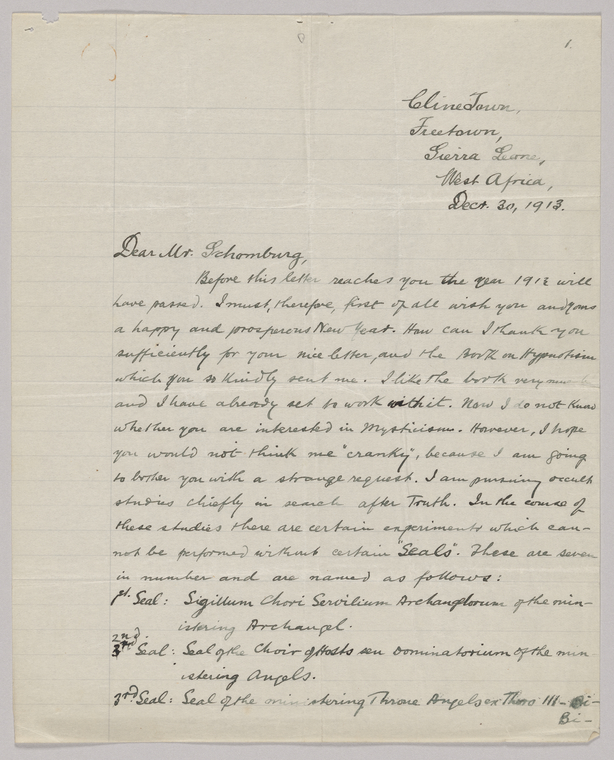 1.
Cline Town,
Freetown,
Sierra Leone,
West Africa,
Decr. 30, 1913.
Dear Mr. Schomburg,
Before this letter reaches you the year 1913 will
have passed. I must, therefore, first of all wish you and yours
a happy and prosperous New Year. How can I thank you
sufficiently for your nice letter, and the Book on Hypnotism
which you so kindly sent me. I like the book very much
and I have already set to work with it. Now I do not know
whether you are interested in Mysticism. However, I hope
you would not think me "cranky", because I am going
to bother you with a strange request. I am pursuing occult
studies chiefly in search after Truth. In the course of
these studies there are certain experiments which can-
not be performed without certain "Seals". These are seven
in number and are named as follows:
1st. Seal: Sigillum Chori Servilium Archangelorum of the min-
istering Archangel.
2nd Seal: Seal of the Choir of Hosts seu Dominatorium of the min-
istering Angels.
3rd Seal: Seal of the ministering Throne Angels ex Thoro III - Bi-
Bi-